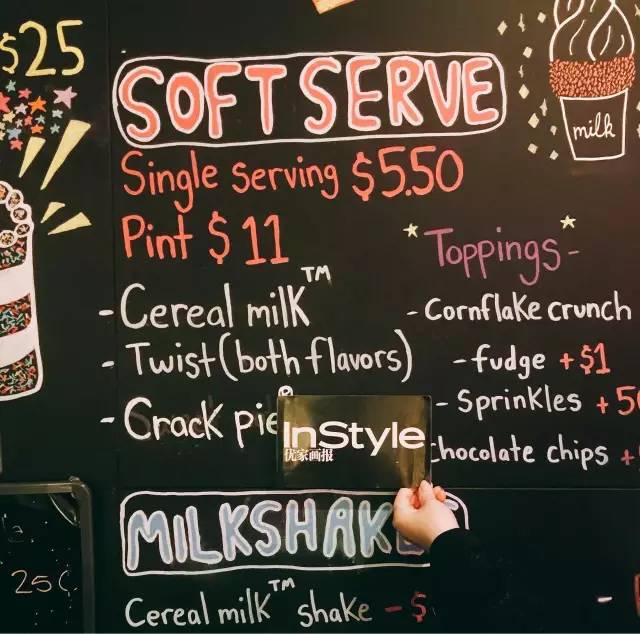 $25
SOFT SERVE
milk
Single serving $5.50
Pint $11
*Toppings*-
- Cereal milk™
- Cornflake crunch
- Twist (both flavors)
- fudge +$1
- Crack pie
- Sprinkles + 50
InStyle
优家画报
chocolate chips +
MILKSHAKE
25¢
Cereal milk™ shake - $